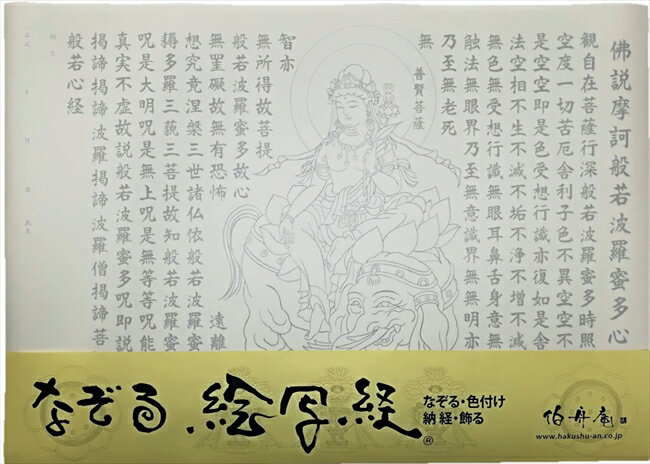 佛説摩訶般若波羅蜜多心
観自在菩薩行深般若波羅蜜多時照
空度一切苦厄舎利子色不異空空不
是空空即是色受想行識亦復如是舎
法空相不生不滅不垢不浄不増不減
無色無受想行識無眼耳鼻舌身意無
触法無眼界乃至無意識界無無明亦
乃至無老死
無
普賢菩薩
智亦
無所得故菩提
般若波羅蜜多故心
無罣礙故無有恐怖 遠離
想究竟涅槃三世諸仏依般若波羅蜜
耨多羅三藐三菩提故知般若波羅蜜
呪是大明呪是無上呪是無等等呪能
真実不虚故説般若波羅蜜多呪即説
掲諦掲諦波羅掲諦波羅僧掲諦菩
般若心経
なぞる 絵写経®
なぞる・色付け
納経・飾る
伯舟庵
www.hakushu-an.co.jp